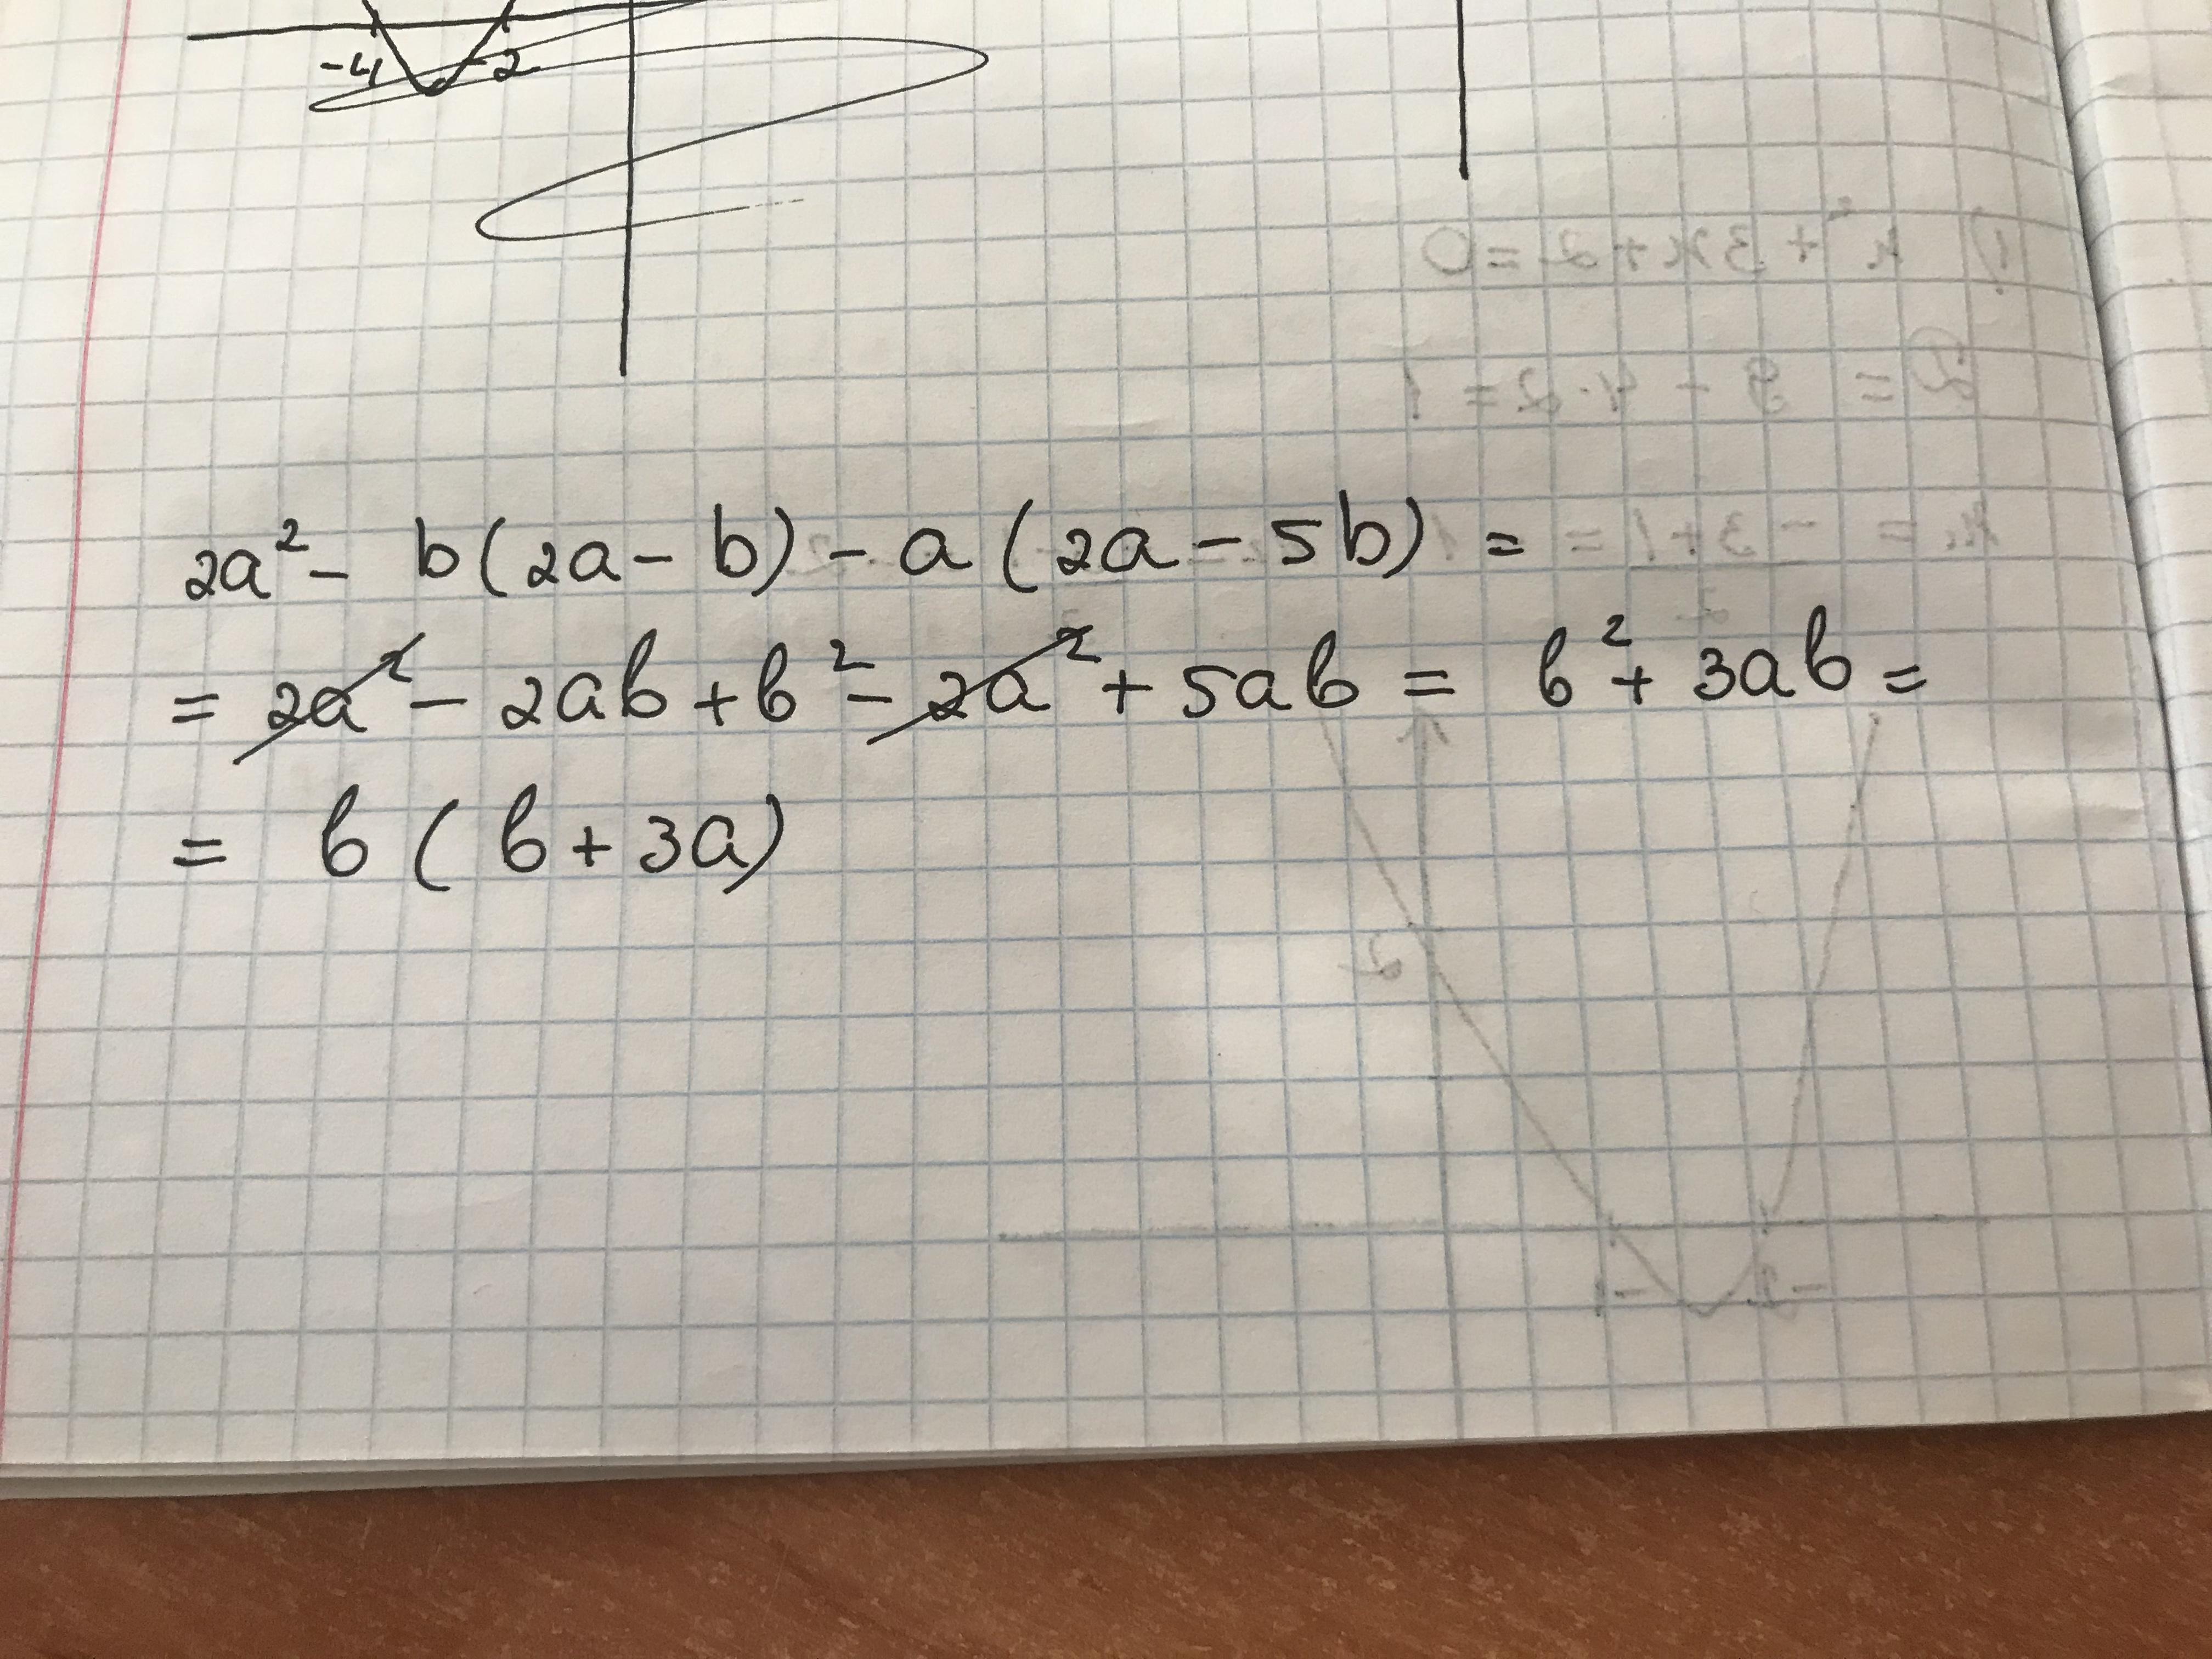 -4 -2
2a² - b(2a - b) - a(2a - 5b) =
= 2a² - 2ab + b² - 2a² + 5ab = b² + 3ab =
= b(b + 3a)